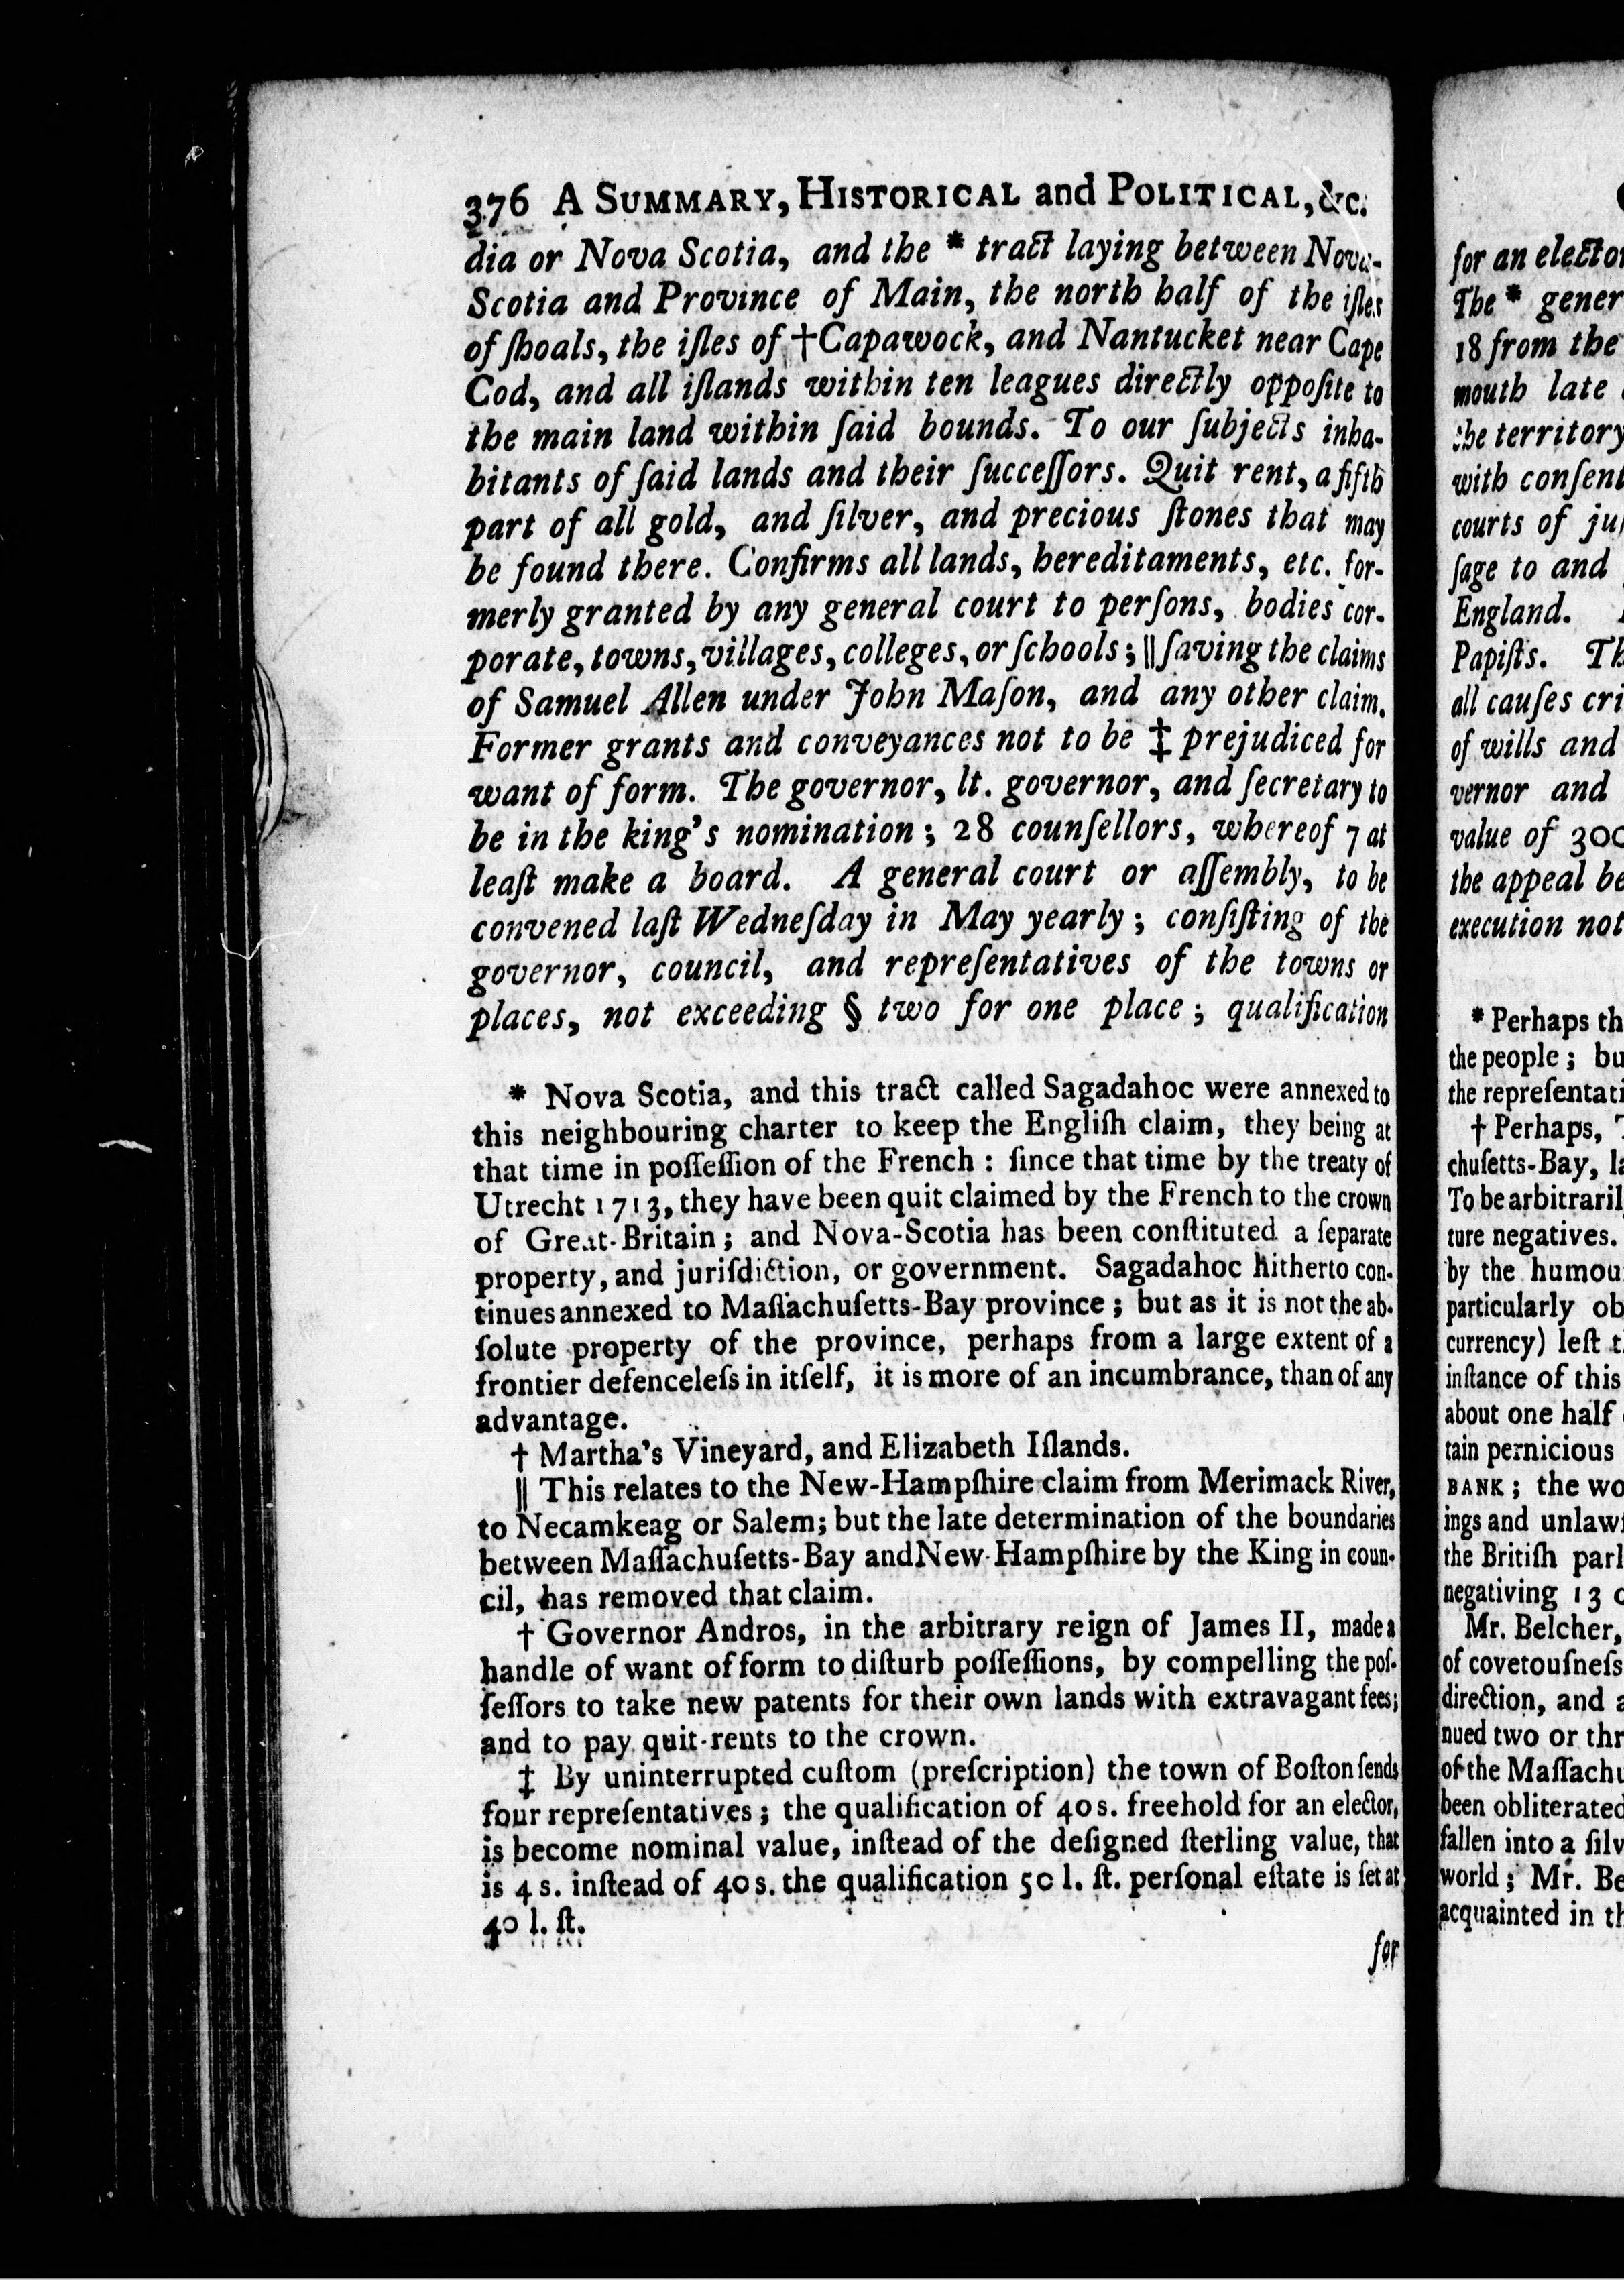 376 A SUMMARY, HISTORICAL and POLITICAL, &c.
dia or Nova Scotia, and the * tract laying between Nova-
Scotia and Province of Main, the north half of the iſles
of ſhoals, the iſles of †Capawock, and Nantucket near Cape
Cod, and all iſlands within ten leagues directly oppoſite to
the main land within ſaid bounds. To our ſubjects inha-
bitants of ſaid lands and their ſucceſſors. Quit rent, a fifth
part of all gold, and ſilver, and precious ſtones that may
be found there. Confirms all lands, hereditaments, etc. for-
merly granted by any general court to perſons, bodies cor-
porate, towns, villages, colleges, or ſchools; || ſaving the claims
of Samuel Allen under John Maſon, and any other claim.
Former grants and conveyances not to be ‡ prejudiced for
want of form. The governor, lt. governor, and ſecretary to
be in the king's nomination; 28 counſellors, whereof 7 at
leaſt make a board. A general court or aſſembly, to be
convened laſt Wedneſday in May yearly; conſiſting of the
governor, council, and repreſentatives of the towns or
places, not exceeding § two for one place; qualification
* Nova Scotia, and this tract called Sagadahoc were annexed to
this neighbouring charter to keep the Engliſh claim, they being at
that time in poſſeſſion of the French: ſince that time by the treaty of
Utrecht 1713, they have been quit claimed by the French to the crown
of Great-Britain; and Nova-Scotia has been conſtituted a ſeparate
property, and juriſdiction, or government. Sagadahoc hitherto con-
tinues annexed to Maſſachuſetts-Bay province; but as it is not the ab-
ſolute property of the province, perhaps from a large extent of a
frontier defenceleſs in itſelf, it is more of an incumbrance, than of any
advantage.
† Martha's Vineyard, and Elizabeth Iſlands.
|| This relates to the New-Hampſhire claim from Merimack River,
to Necamkeag or Salem; but the late determination of the boundaries
between Maſſachuſetts-Bay and New-Hampſhire by the King in coun-
cil, has removed that claim.
† Governor Andros, in the arbitrary reign of James II, made a
handle of want of form to diſturb poſſeſſions, by compelling the poſ-
ſeſſors to take new patents for their own lands with extravagant fees;
and to pay quit-rents to the crown.
‡ By uninterrupted cuſtom (preſcription) the town of Boſton ſends
four repreſentatives; the qualification of 40 s. freehold for an elector,
is become nominal value, inſtead of the deſigned ſterling value, that
is 4 s. inſtead of 40 s. the qualification 50 l. ſt. perſonal eſtate is ſet at
40 l. ſt.
for
for an elector
The * gener
18 from the
mouth late
the territory
with conſent
courts of ju
ſage to and
England.
Papiſts. Th
all cauſes cri
of wills and
vernor and
value of 300
the appeal be
execution not
* Perhaps th
the people; bu
the repreſentati
† Perhaps,
chuſetts-Bay, la
To be arbitraril
ture negatives.
by the humou
particularly ob
currency) left t
inſtance of this
about one half
tain pernicious
BANK; the wo
ings and unlawf
the Britiſh parl
negativing 13
Mr. Belcher,
of covetouſneſs
direction, and a
nued two or thr
of the Maſſachu
been obliterated
fallen into a ſilv
world; Mr. Be
acquainted in th